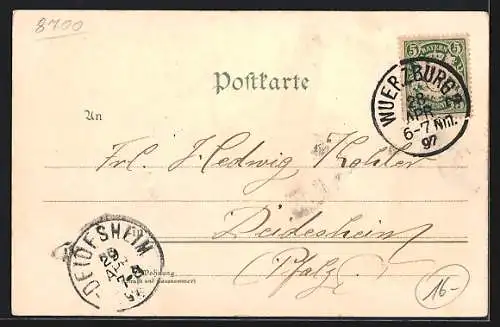 8700
5 BAYERN 5
Postkarte
WUERZBURG 2.
28
APR
6-7 Nm.
97
An
Frl. Hedwig Kohler
Deidesheim
Pfalz
DEIDESHEIM
29
APR
7-8
97
Wohnung
(Straße und Hausnummer)
16-